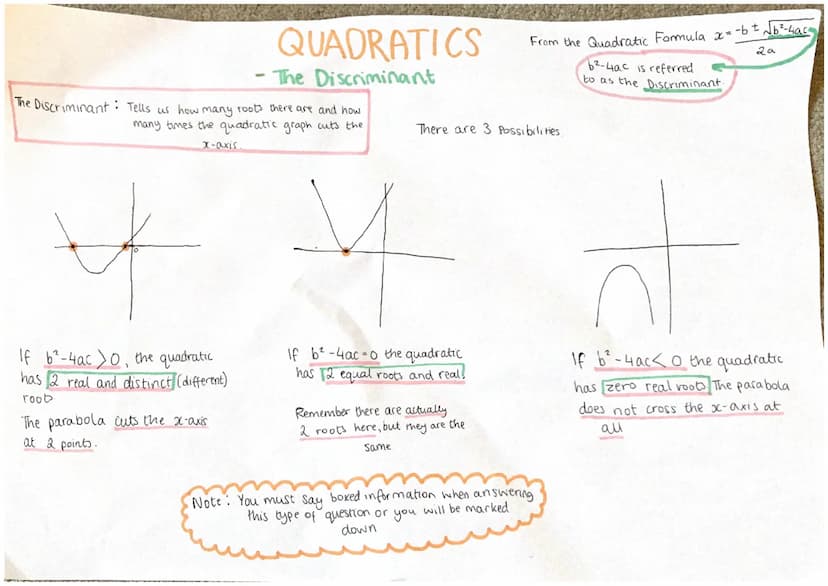 QUADRATICS
- The Discriminant
From the Quadratic Formula x = -b ± √b²-4ac
2a
b²-4ac is referred
to as the Discriminant.
The Discriminant : Tells us how many roots there are and how
many times the quadratic graph cuts the
x-axis.
There are 3 Possibilities
0
If b²-4ac > 0, the quadratic
has 2 real and distinct (different)
root
The parabola cuts the x-axis
at 2 points.
If b²-4ac = 0 the quadratic
has 2 equal roots and real
Remember there are actually
2 roots here, but they are the
same
If b²-4ac < 0 the quadratic
has zero real roots The parabola
does not cross the x-axis at
all
Note : You must say boxed information when answering
this type of question or you will be marked
down